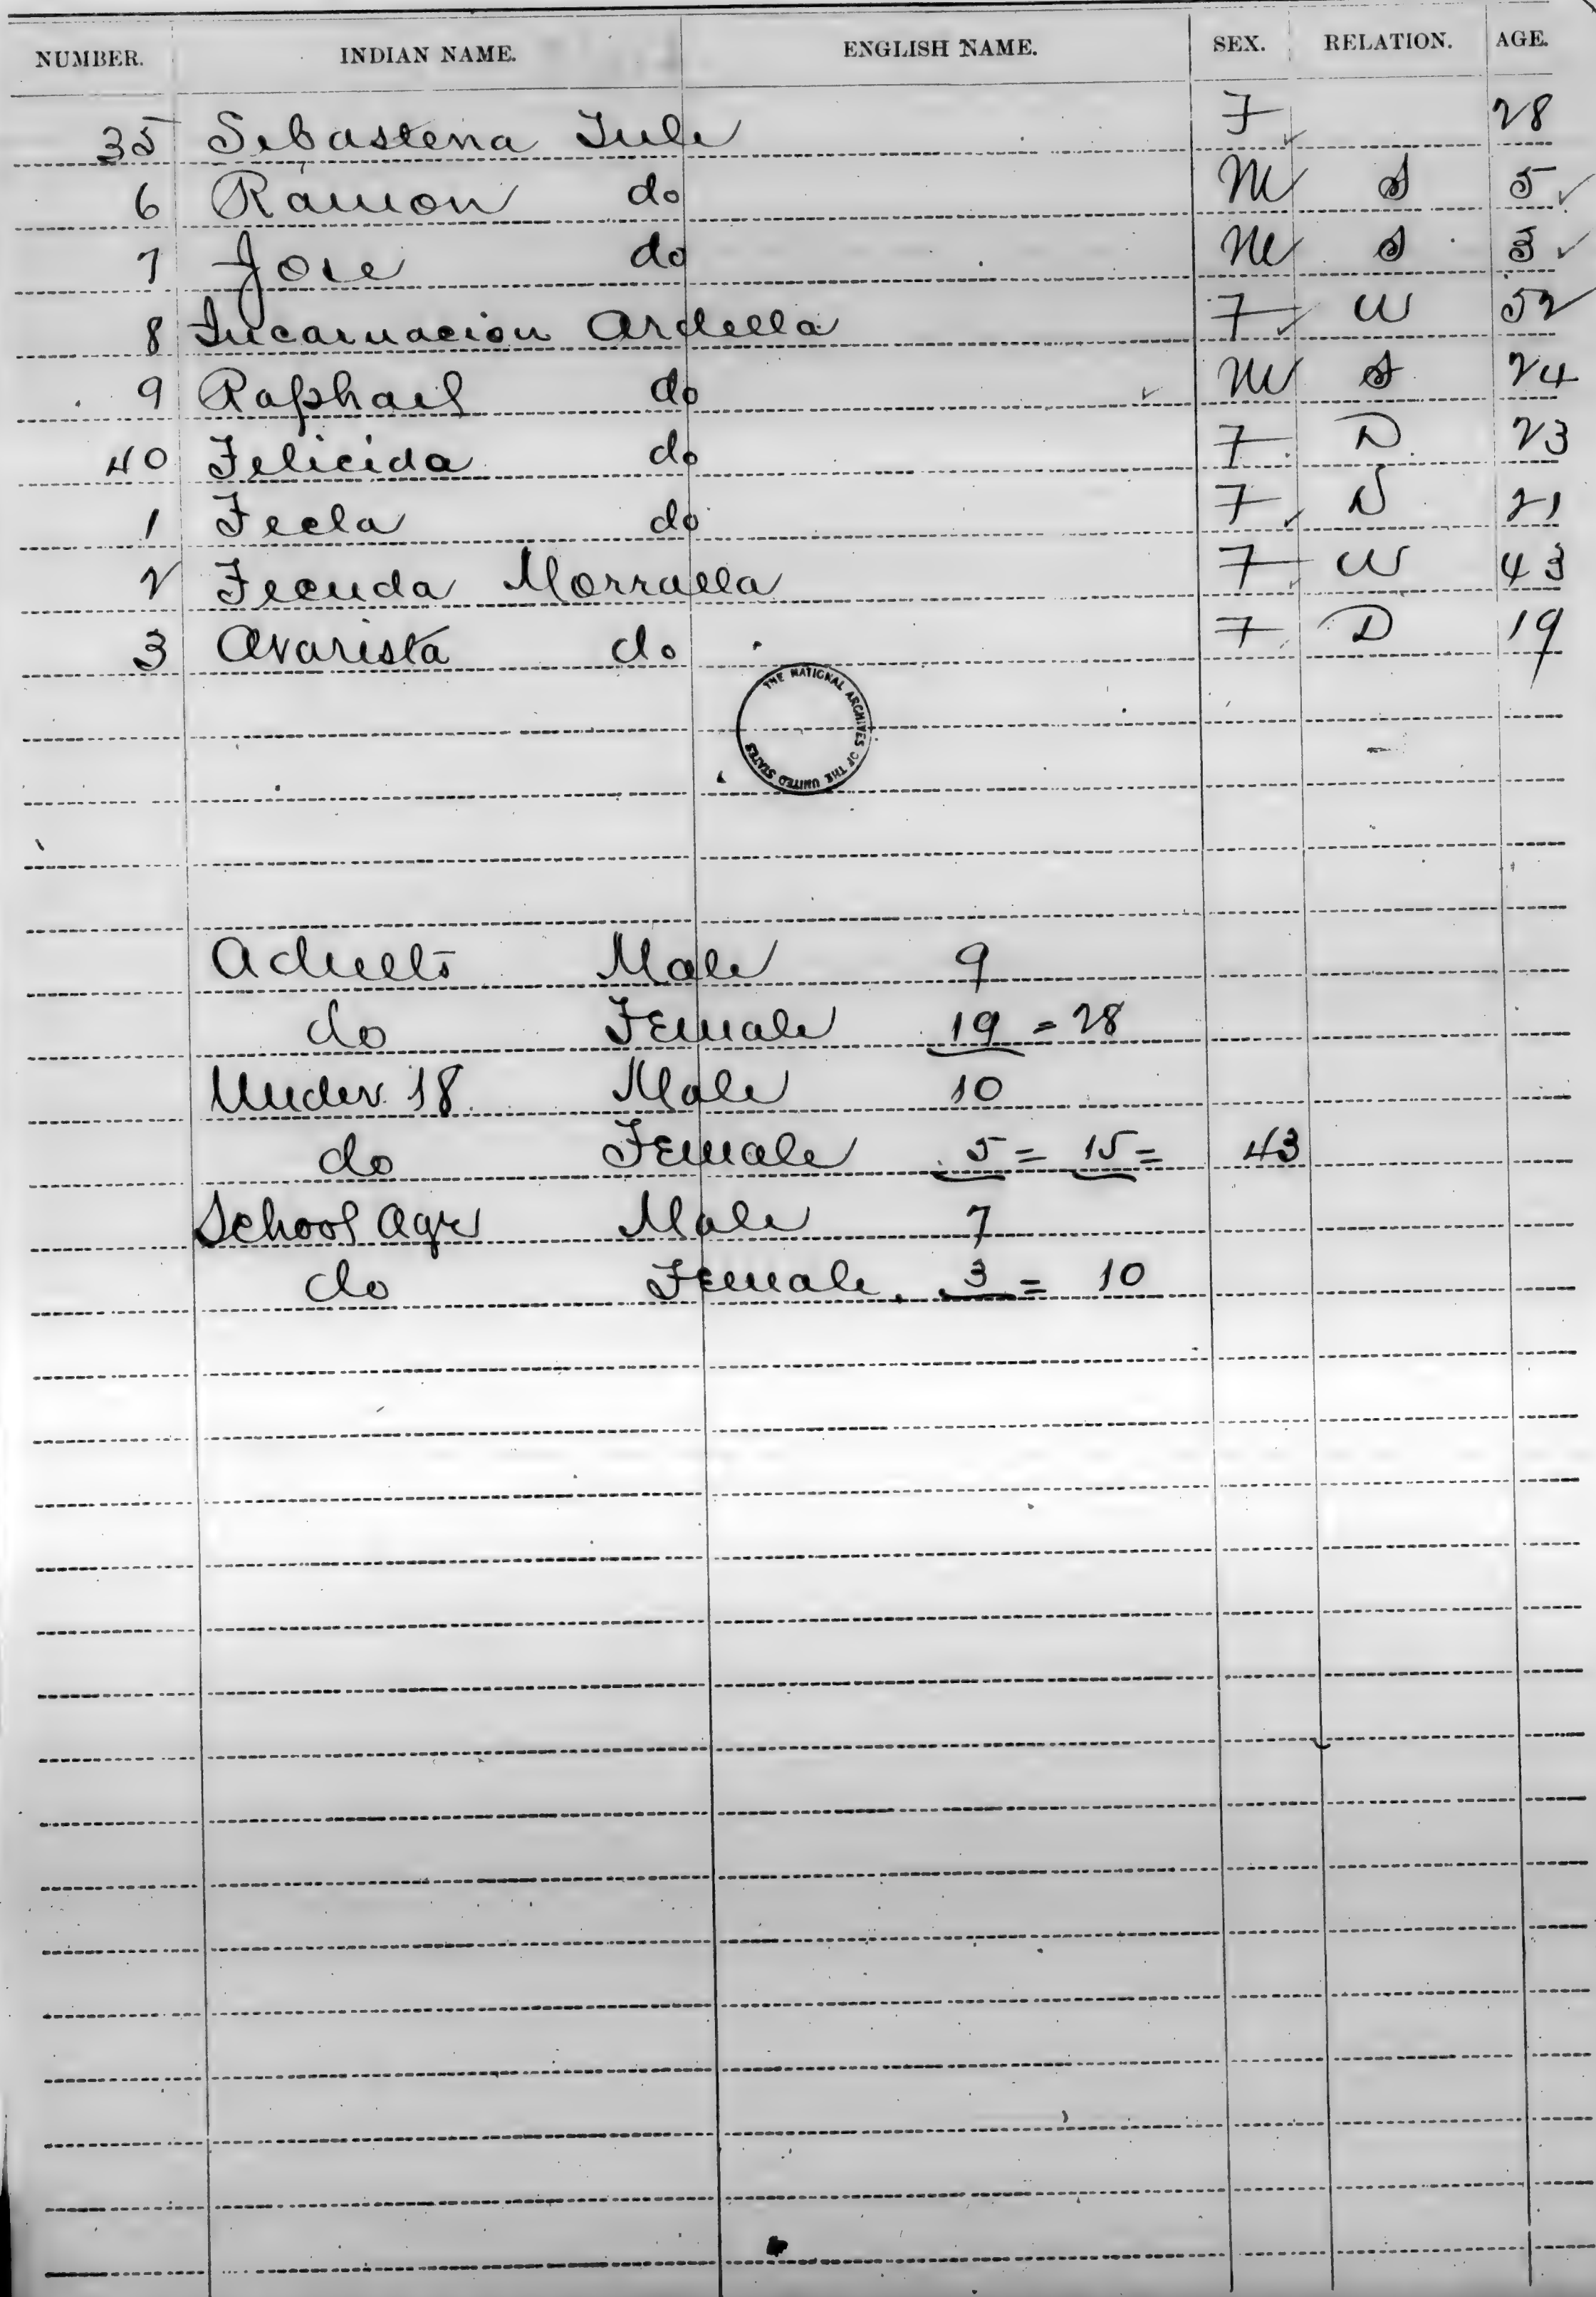 NUMBER. INDIAN NAME. ENGLISH NAME. SEX. RELATION. AGE.
35 Sebastena Tule F 28
6 Ramon do M S 5
7 Jose do M S 3
8 Incarnacion Ardella F W 52
9 Raphael do M S 24
40 Felicida do F D 23
1 Tecla do F D 21
2 Fecuda Morralla F W 43
3 Avarista do F D 19
THE NATIONAL ARCHIVES OF THE UNITED STATES
Adults Male 9
do Female 19 = 28
Under 18 Male 10
do Female 5 = 15 = 43
School Age Male 7
do Female 3 = 10